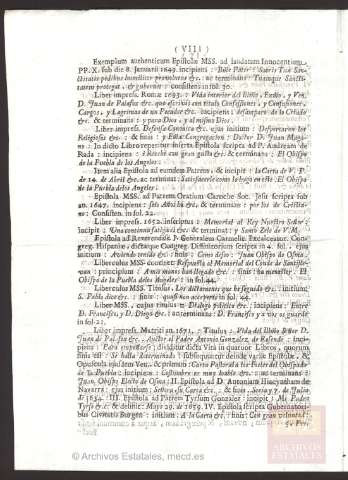 ( VIII )
Exemplum authenticum Epistolæ MSS. ad laudatum Innocentium
PP. X. sub die 8. Januarii 1649. incipiens : Beate Pater : Sacris Tuæ Sanc-
titatis pedibus humiliter provolutus &c. ac terminans : Tuamque Sancti-
tatem protegat, & gubernet : consistens in fol. 70.
Liber impress. Romæ 1693. : Vida interior del Ilmo. Excmo. y Ven.
D. Juan de Palafox &c. que escribió con titulo Confessiones, y Confusiones,
Cargos, y Lagrimas de un Pecador &c. incipiens : desamparo de la Criado
&c. & terminans : y para Dios, y al mismo Dios.
Liber impress. Defensa Canonica &c. ejus initium : Defienvanse los
Religiosos &c. & finis : y Esta Congregacion : Doctor D. Juan Magá-
no : In dicto Libro reperitur inserta Epistola scripta ad P. Andream de
Rada : incipiens : Recibí con gran gusto &c. & terminans : El Obispo
de la Puebla de los Angeles.
Item alia Epistola ad eumdem Patrem, & incipit : la Carta de V. P.
de 14. de Abril &c. ac terminat : Satisfacerse como lo hago en esta : El Obispo
de la Puebla delos Angeles.
Epistola MSS. ad Patrem Oratium Caroche Soc. Jesu scripta sub
an. 1647. incipiens : &c. & terminans : por los de Christia-
no : Consistens. in fol. 22.
Liber impress. 1652. inscriptus : Memorial al Rey Nuestro Señor,
Incipit : Una continuada fatiga &c. & terminat : y Santo Zelo de V. M.
Epistola ad Reverendiss. P. Generalem Carmelit. Excalceator. Congreg.
Hispaniæ, dictæque Congreg. Definitorium scripta in 4. fol. , ejus
initium : Aviendo tenido &c. finis : Como dejeo : Juan Obispo de Osma.
Liberculus MSS. continet Respuesta al Memorial del Conde de Santiste-
van : principium : A mis manos ha llegado &c. : finis : ha menester : El
Obispo de la Puebla delos Angeles : in fol. 44.
Liberculus MSS. Titulus : Los dictamenes que he seguido &c. : initium,
S. Pablo dice &c. finis : in fol. 44.
Liber MSS. , cujus titulus : Dialogo politico &c. : incipiens : Entre
D. Francisco, y D. Diego &c. : ac terminans : D. Francisco y a vos os guarde
in fol. 22.
Liber impress. Matriti an. 1671. : Titulus : Vida del Ilmo Señor D.
Juan de Palafox &c. , Auctor el Padre Antonio Gonzalez de Rosende : inci-
piens : dividitur dicta Vita in quatuor Libros, quorum
finis est : Se halla determinado : subsequuntur deinde variæ Epistolæ, &
Opuscula ejusdem Ven. , & primùm : Carta Pastoral a los Curas del Obispado
de la Puebla : incipiens : Costumbre es muy loable &c. : ac terminans :
Juan, Obispo Electo de Osma : II. Epistola ad D. Antonium Huezyanhum de
Navarra : ejus initium : Señor, la Carta &c. & finis : Soria y 7. de Julio
de 1654. III. Epistola ad Patrem Tyrsum Gonzalez : incipit : Mi Padre
Tyrso &c. & desinit : Mayo 29. de 1659. IV. Epistola scripta Gubernatori-
bus Civitatis Burgos : initium : A la Carta &c. finis : Con gran puntualid.
© Archivos Estatales, mecd.es
ARCHIVOS
ESTATALES